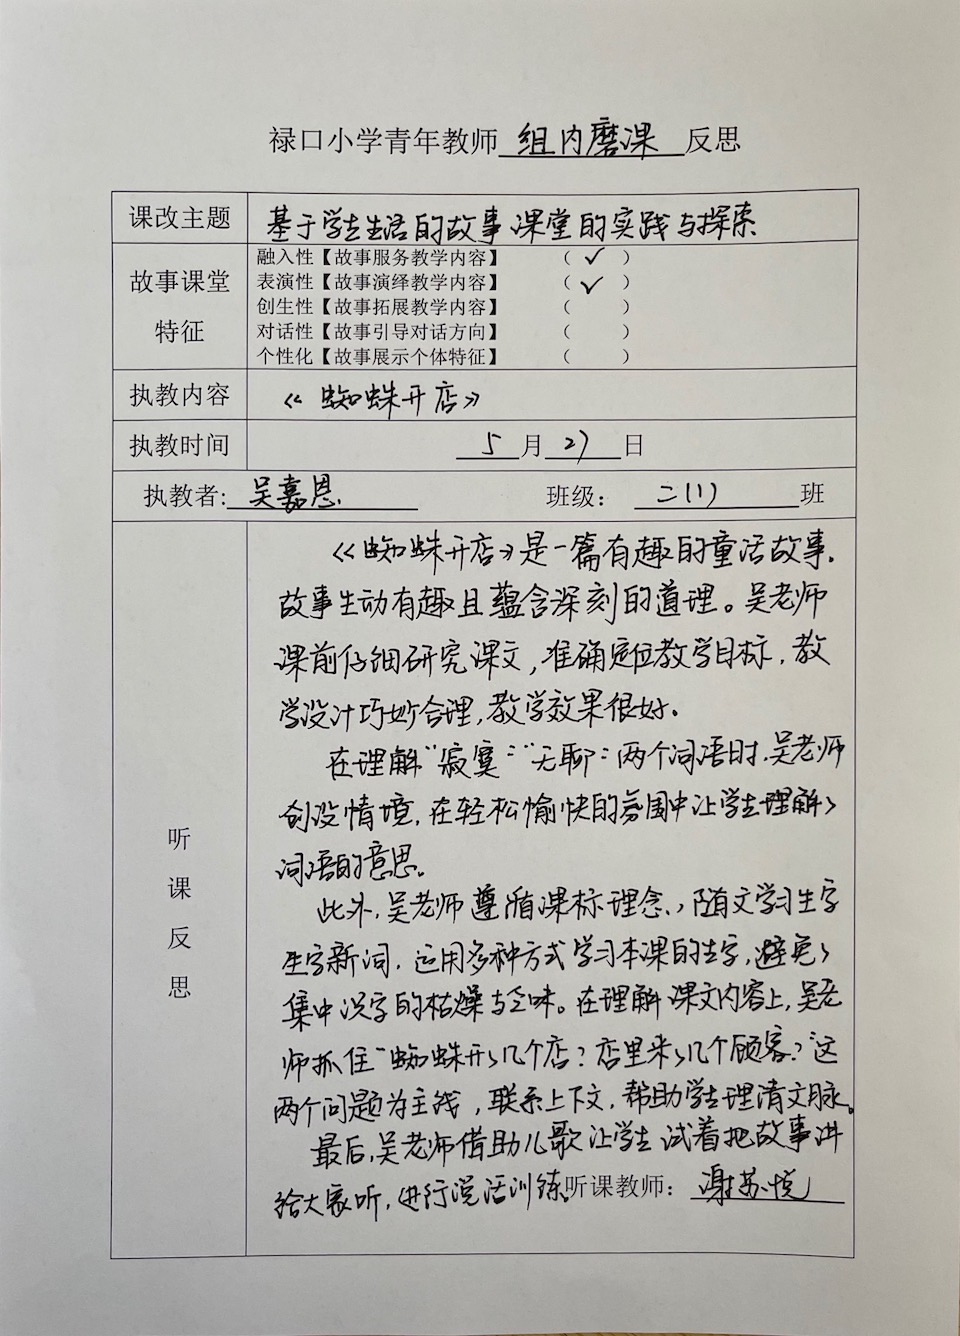 禄口小学青年教师 组内磨课 反思
课改主题 基于学生生活的故事课堂的实践与探索
故事课堂特征
融入性【故事服务教学内容】 ( ✓ )
表演性【故事演绎教学内容】 ( ✓ )
创生性【故事拓展教学内容】 ( )
对话性【故事引导对话方向】 ( )
个性化【故事展示个体特征】 ( )
执教内容 《蜘蛛开店》
执教时间 5 月 27 日
执教者: 吴嘉恩 班级: 二(1) 班
听课反思
《蜘蛛开店》是一篇有趣的童话故事.
故事生动有趣且蕴含深刻的道理。吴老师
课前仔细研究课文,准确定位教学目标,教
学设计巧妙合理,教学效果很好。
在理解“寂寞”“无聊”两个词语时,吴老师
创设情境,在轻松愉快的氛围中让学生理解了
词语的意思。
此外,吴老师遵循课标理念,随文学习生字
生字新词,运用多种方式学习本课的生字,避免了
集中识字的枯燥与乏味。在理解课文内容上,吴老
师抓住“蜘蛛开了几个店?店里来了几个顾客?”这
两个问题为主线,联系上下文,帮助学生理清文脉。
最后,吴老师借助儿歌让学生试着把故事讲
给大家听,进行说话训练。
听课教师: 谢苏悦